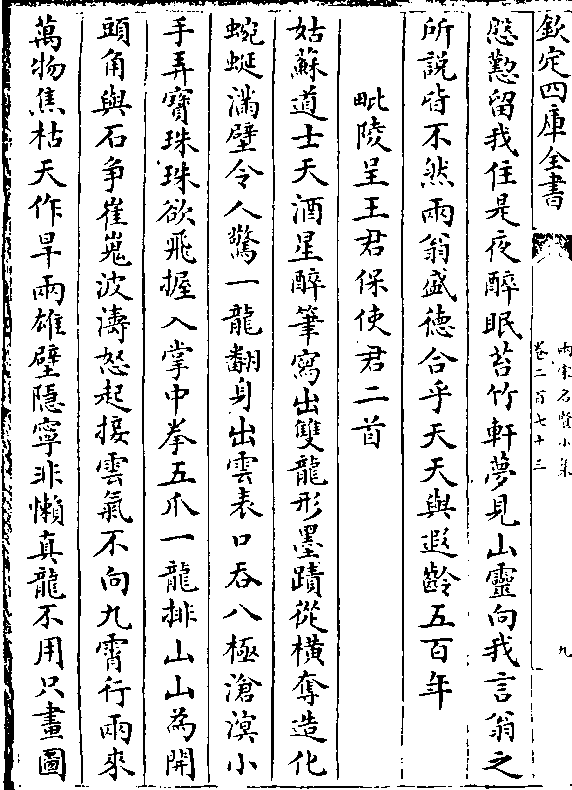 欽定四庫全書
兩宋名賢小集
卷二百七十三
九
慇懃留我住是夜醉眠苔竹軒夢見山靈向我言翁之
所說皆不然兩翁盛德合乎天天與遐齡五百年
毗陵呈王君保使君二首
姑蘇道士天酒星醉筆寫出雙龍形墨蹟從橫奪造化
蜿蜒滿壁令人驚一龍翻身出雲表口吞八極滄溟小
手弄寳珠珠欲飛握入掌中拳五爪一龍排山山為開
頭角與石争崔嵬波濤怒起接雲氣不向九霄行雨來
萬物焦枯天作旱兩雄壁隱寧非懶真龍不用只畫圖